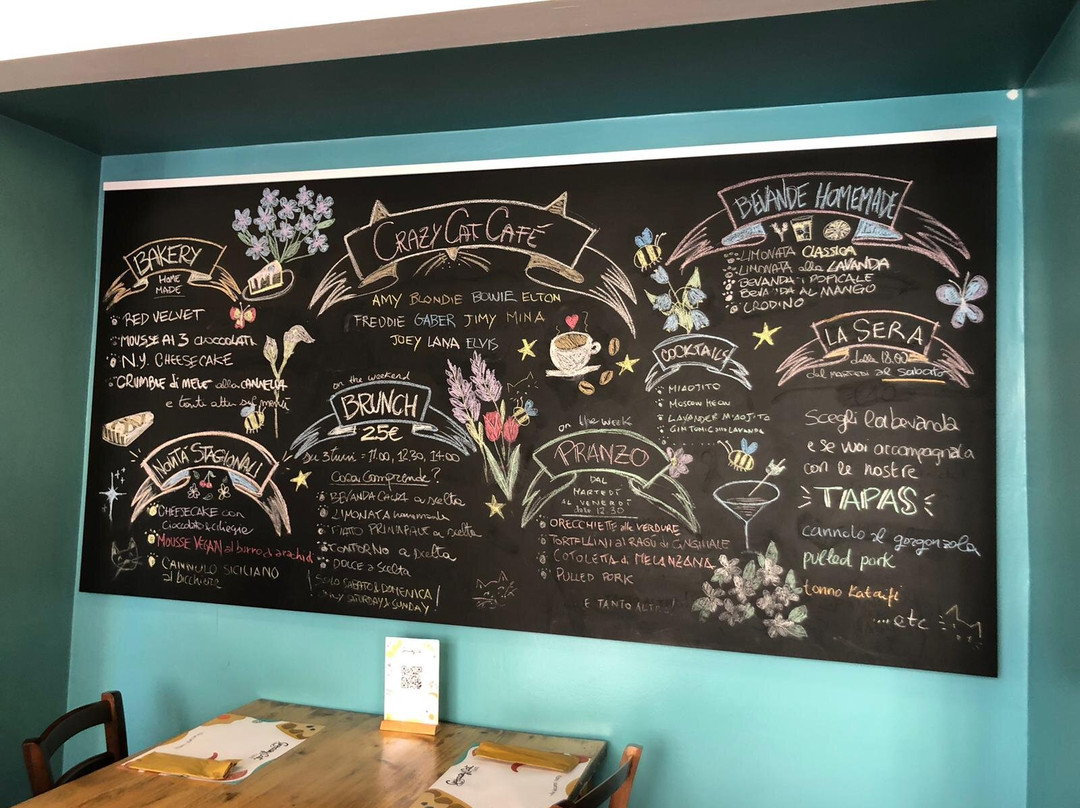 BAKERY
HOME
MADE
RED VELVET
MOUSSE AI 3 CIOCCOLATI
N.Y. CHEESECAKE
CRUMBLE di MELE alla CANNELLA
e tanti altri nel menù
NOVITÀ STAGIONALI
CHEESECAKE con
cioccolato & ciliegie
MOUSSE VEGAN al burro d'arachidi
CANNOLO SICILIANO
al bicchiere
CRAZY CAT CAFÉ
AMY BLONDIE BOWIE ELTON
FREDDIE GABER JIMY MINA
JOEY LANA ELVIS
on the weekend
BRUNCH
25€
su 3 turni = 11.00, 12.30, 14.00
Cosa Comprende?
BEVANDA CALDA a scelta
LIMONATA homemade
PIATTO PRINCIPALE a scelta
CONTORNO a scelta
DOLCE a scelta
SOLO SABATO & DOMENICA
ONLY SATURDAY & SUNDAY
on the week
PRANZO
DAL
MARTEDÌ
AL VENERDÌ
dalle 12.30
ORECCHIETTE alle VERDURE
TORTELLINI al RAGÙ di CINGHIALE
COTOLETTA di MELANZANA
PULLED PORK
E TANTO ALTRO!
BEVANDE HOMEMADE
LIMONATA CLASSICA
LIMONATA alla LAVANDA
BEVANDA TROPICALE
BEVANDA AL MANGO
CRODINO
COCKTAILS
MOJITO
MOSCOW MULE
LAVANDER MOJITO
GIN TONIC alla LAVANDA
LA SERA
dalle 18.00
dal MARTEDÌ al sabato
Scegli la bevanda
e se vuoi accompagnala
con le nostre
TAPAS
cannolo al gorgonzola
pulled pork
tonno Kataifi
....etc